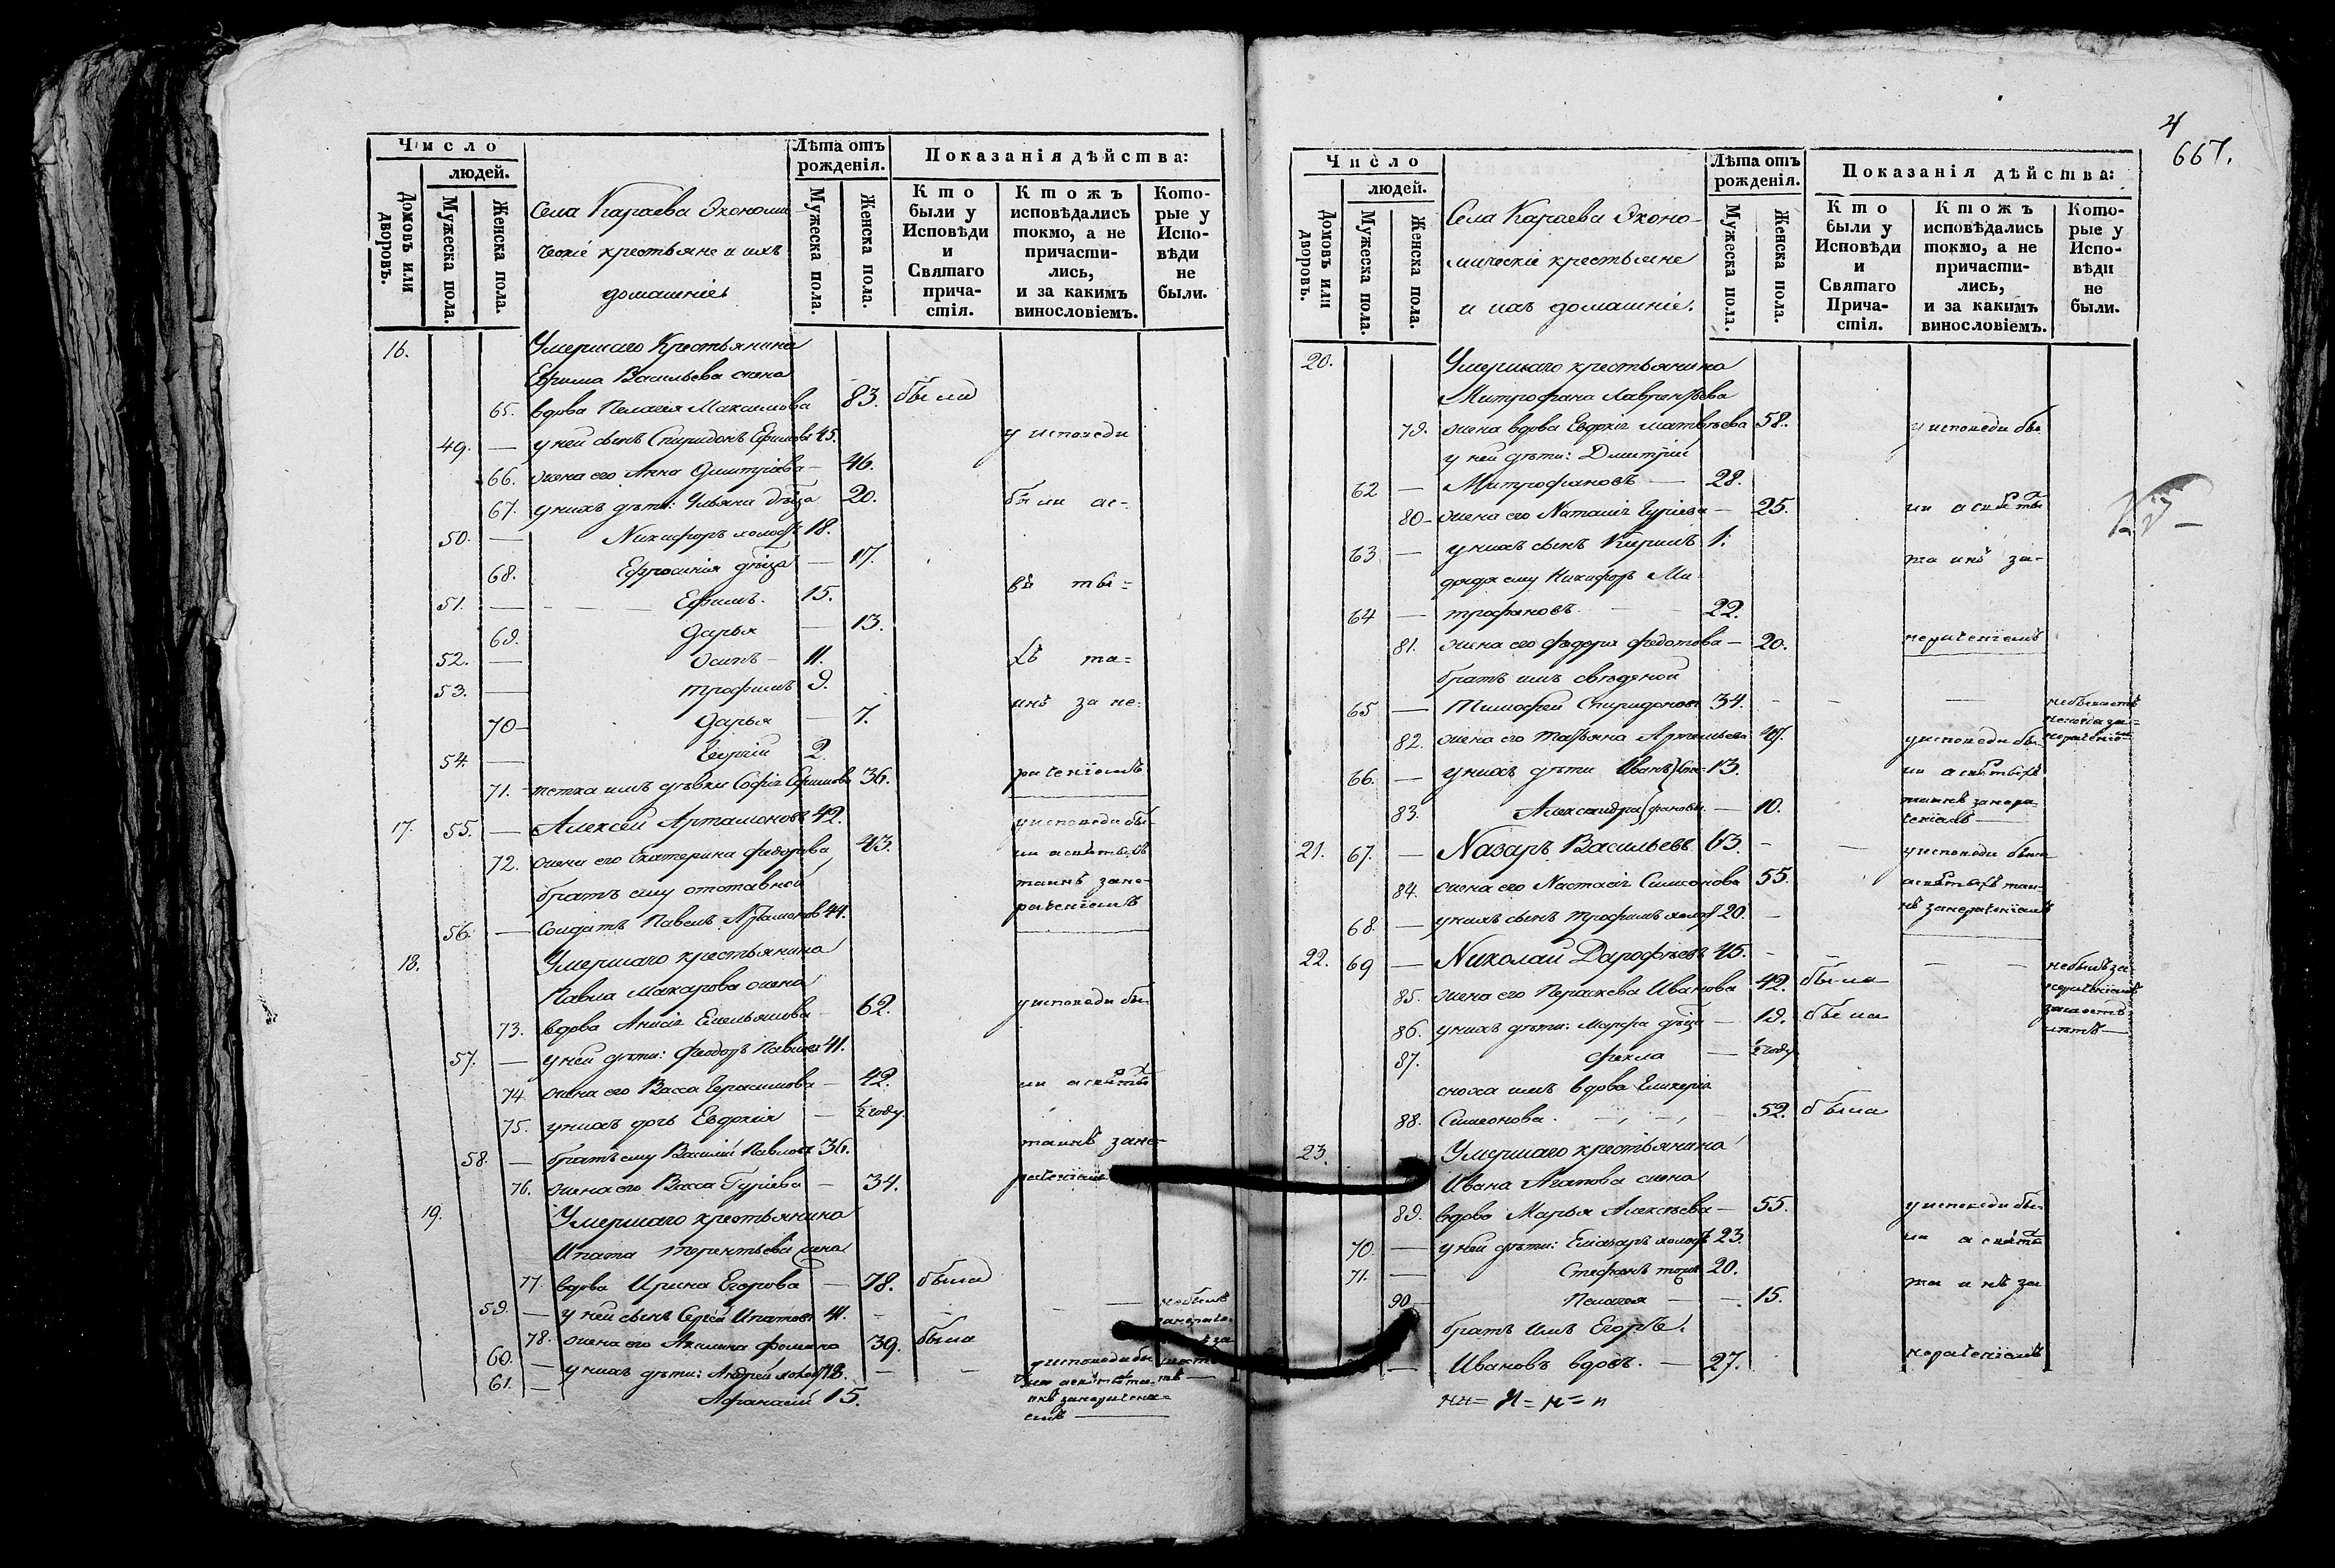 Число
людей.
Домовъ или дворовъ.
Мужеска пола.
Женска пола.
Села Караева Экономи-
ческіе крестьяне и ихъ
домашніе
Лѣта отъ рожденія.
Мужеска пола.
Женска пола.
Показанія дѣйства:
Кто были у Исповѣди и Святаго причастія.
Ктожъ исповѣдались токмо, а не причастились, и за какимъ винословіемъ.
Которые у Исповѣди не были.
16. Умершаго Крестьянина
Ефима Васильева жена
65. вдова Пелагея Максимова 83. была
49. — у ней сынъ Спиридонъ Ефимовъ 45. у исповеди
66. жена его Анна Дмитріева — 46.
67. у нихъ дѣти: Ульяна дѣвца 20. были ас-
50. — Никифоръ холосъ 18.
68. Ефросинія дѣвца — 17. вя ты=
51. — Ефимъ. 15.
69. Дарья — 13.
52. — Осипъ — 11. хъ та=
53. — Трофимъ 9.
70 — Дарья — 7. инъ за не=
54. — Георгій 2.
71. — тетка имъ дѣвка Софія Ефимова 36. раченіемъ
17. 55. — Алексей Артамоновъ 42. у исповеди бы-
72. жена его Екатерина Федорова 43. ли а святыхъ
братъ ему отставной таинъ зане-
56. — Солдатъ Павелъ Артамоновъ 44. раченіемъ
18. Умершаго крестьянина
Павла Макарова жена
73. вдова Анисія Емельянова — 62. у исповеди бы-
57. — у ней дѣти: Феодоръ Павловъ 41.
74. жена его Васса Герасимова — 42. ли а святы
75. у нихъ дочь Евдокія — ½ году
58. — братъ ему Василій Павловъ 36. таинъ зане-
76. жена его Васса Гуріева — 34. раченіемъ
19. Умершаго крестьянина
Ипата Терентьева жена
77. вдова Ирина Егорова — 78. была
59. — у ней сынъ Сергей Ипатовъ 41. — небылъ
78. жена его Акилина Фомина 39. была
60. — у нихъ дѣти: Андрей холосъ 18. — у исповеди бы
61. — Афанасій 15.
4
667.
Число
людей.
Домовъ или дворовъ.
Мужеска пола.
Женска пола.
Села Караева Эконо-
мическіе крестьяне
и ихъ домашніе.
Лѣта отъ рожденія.
Мужеска пола.
Женска пола.
Показанія дѣйства:
Кто были у Исповѣди и Святаго Причастія.
Ктожъ исповѣдались токмо, а не причастились, и за какимъ винословіемъ.
Которые у Исповѣди не были.
20. Умершаго крестьянина
Митрофана Лаврентьева
79. жена вдова Евдокія Матвѣева 58. у исповеди бы
у ней дѣти: Дмитрій
62 — Митрофановъ — 28.
80 — жена его Наталія Гуріева — 25. ли а святы
63 — у нихъ сынъ Кирилъ 1.
дядя ему Никифоръ Ми- та инъ за-
64 — трофановъ — 22.
81. жена его Федора Федотова — 20. нераченіемъ
братъ имъ сведеной
65 — Тимофей Спиридоновъ 34. —
82. жена его Татьяна Артемьева 41. у исповеди бы-
66. — у нихъ дѣти Иванъ 13. ли а святыхъ
83. Александра — 10. таинъ занера-
ченіемъ
21. 67. — Назаръ Васильевъ 63. — у исповеди были
84. жена его Настасія Симеонова 55. а святыхъ таи-
68. — у нихъ сынъ Трофимъ холос 20. — нъ занераченіемъ
22. 69 — Николай Дарофѣевъ 45. — небылъ за
85. жена его Параскева Иванова 42. была нераченіемъ
86. у нихъ дѣти: Марфа дѣвца — 19. была
87. Фекла — ½ году
сноха имъ вдова Гликерія
88. Симеонова. — 52. была
23. Умершаго крестьянина
Ивана Агапова жена
89. вдова Марья Алексѣева — 55. у исповеди бы-
70. — у ней дѣти: Елизаръ холосъ 23. ли а святы
71. — Стефанъ тожъ 20.
90 — Пелагея — 15. та инъ за
братъ имъ Егоръ.
— Ивановъ вдовъ. — 27. нераченіемъ